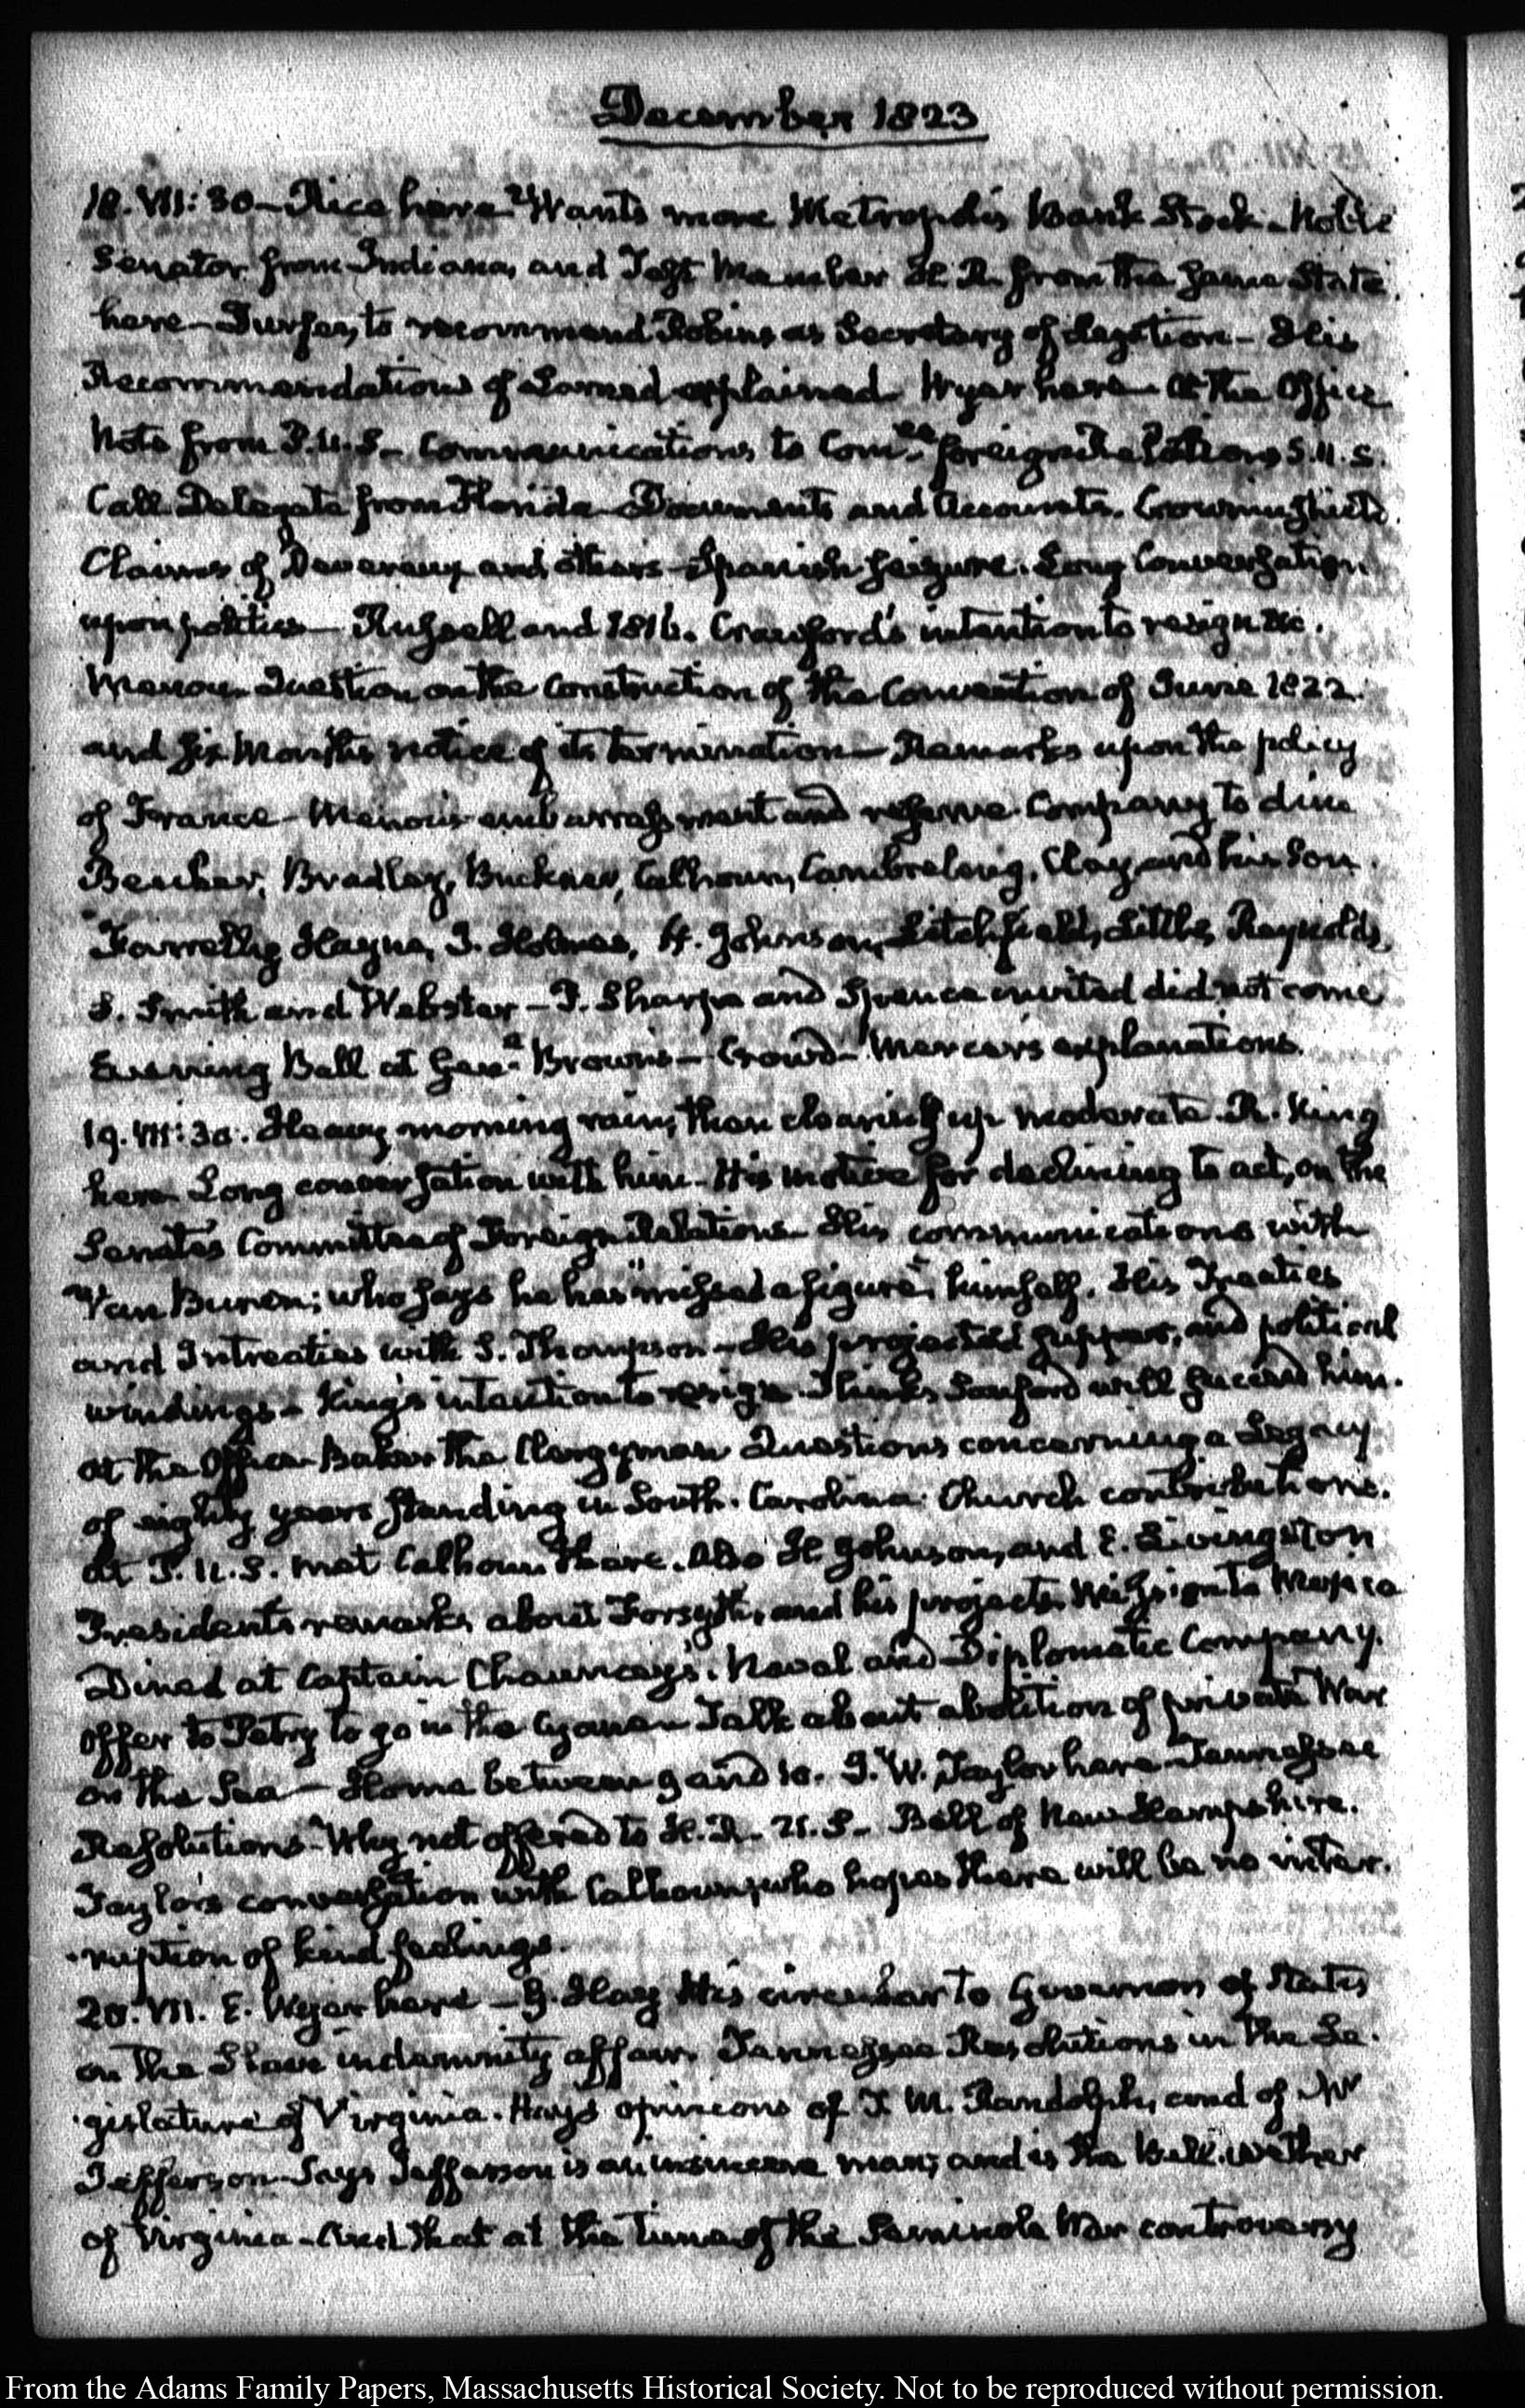 December 1823
18. VII:30 – Rice here Wants more Metropolis Bank Stock. Noble
Senator from Indiana, and Test Member H.R. from the same State
here – to recommend Robins as Secretary of legation – His
Recommendation of Larned explained. Wyer here. At the Office
Note from P.U.S. – Communications to Com.ee foreign Relations S.U.S.
Call Delegate from Florida – Documents and Accounts. Crowninshield
Claims of Devereux and others – Spanish seizure. Long Conversation
upon politics – Russell and 1816. Crawford's intention to resign &c.
Menou. Question on the Construction of the Convention of June 1822
and six Months notice of its termination – Remarks upon the policy
of France – Menou's embarrassment and reserve. Company to dine
Beecher, Bradley, Buckner, Calhoun, Cambreleng, Clay and his Son
Farrelly, Hayne, J. Holmes, H. Johnson, Litchfield, Little, Reynolds,
S. Smith and Webster – P. Sharpe and Spence invited did not come
Evening Ball at Gen.l Brown's – Crowd – Mercer's explanations.
19. VII:30. Heavy morning rain, then clearing up moderate. R. King
here Long conversation with him. His motive for declining to act, on the
Senate's Committee of Foreign Relations. His communications with
Van Buren; who says he has "missed a figure," himself. His Treaties
and Intreaties with S. Thompson – His projected supper, and political
windings – King's intention to resign. Thinks Sanford will succeed him.
At the Office – Baker the Clergyman Questions concerning a Legacy
of eighty years standing in South. Carolina. Church contributions.
At P.U.S. met Calhoun there. Also H. Johnson, and E. Livingston
President's remarks about Forsyth, and his projects. Mission to Mexico
Dined at Captain Chauncey's. Naval and Diplomatic Company.
Offer to Petry to go in the Cyane – Talk about abolition of private War
on the Sea – Home between 9 and 10. J. W. Taylor here – Tennessee
Resolutions – Why not offered to H.R. U.S. – Bell of New Hampshire.
Taylor's conversation with Calhoun; who hopes there will be no inter-
-ruption of kind feelings.
20. VII. E. Wyer here – G. Hay His circular to Governors of States
on the Slave indemnity affair. Tennessee Resolutions in the Le-
-gislature of Virginia. Hay's opinions of T. M. Randolph, and of Mr
Jefferson – Says Jefferson is an insincere man; and is the bell.wether
of Virginia – And that at the time of the Seminole War controversy
From the Adams Family Papers, Massachusetts Historical Society. Not to be reproduced without permission.